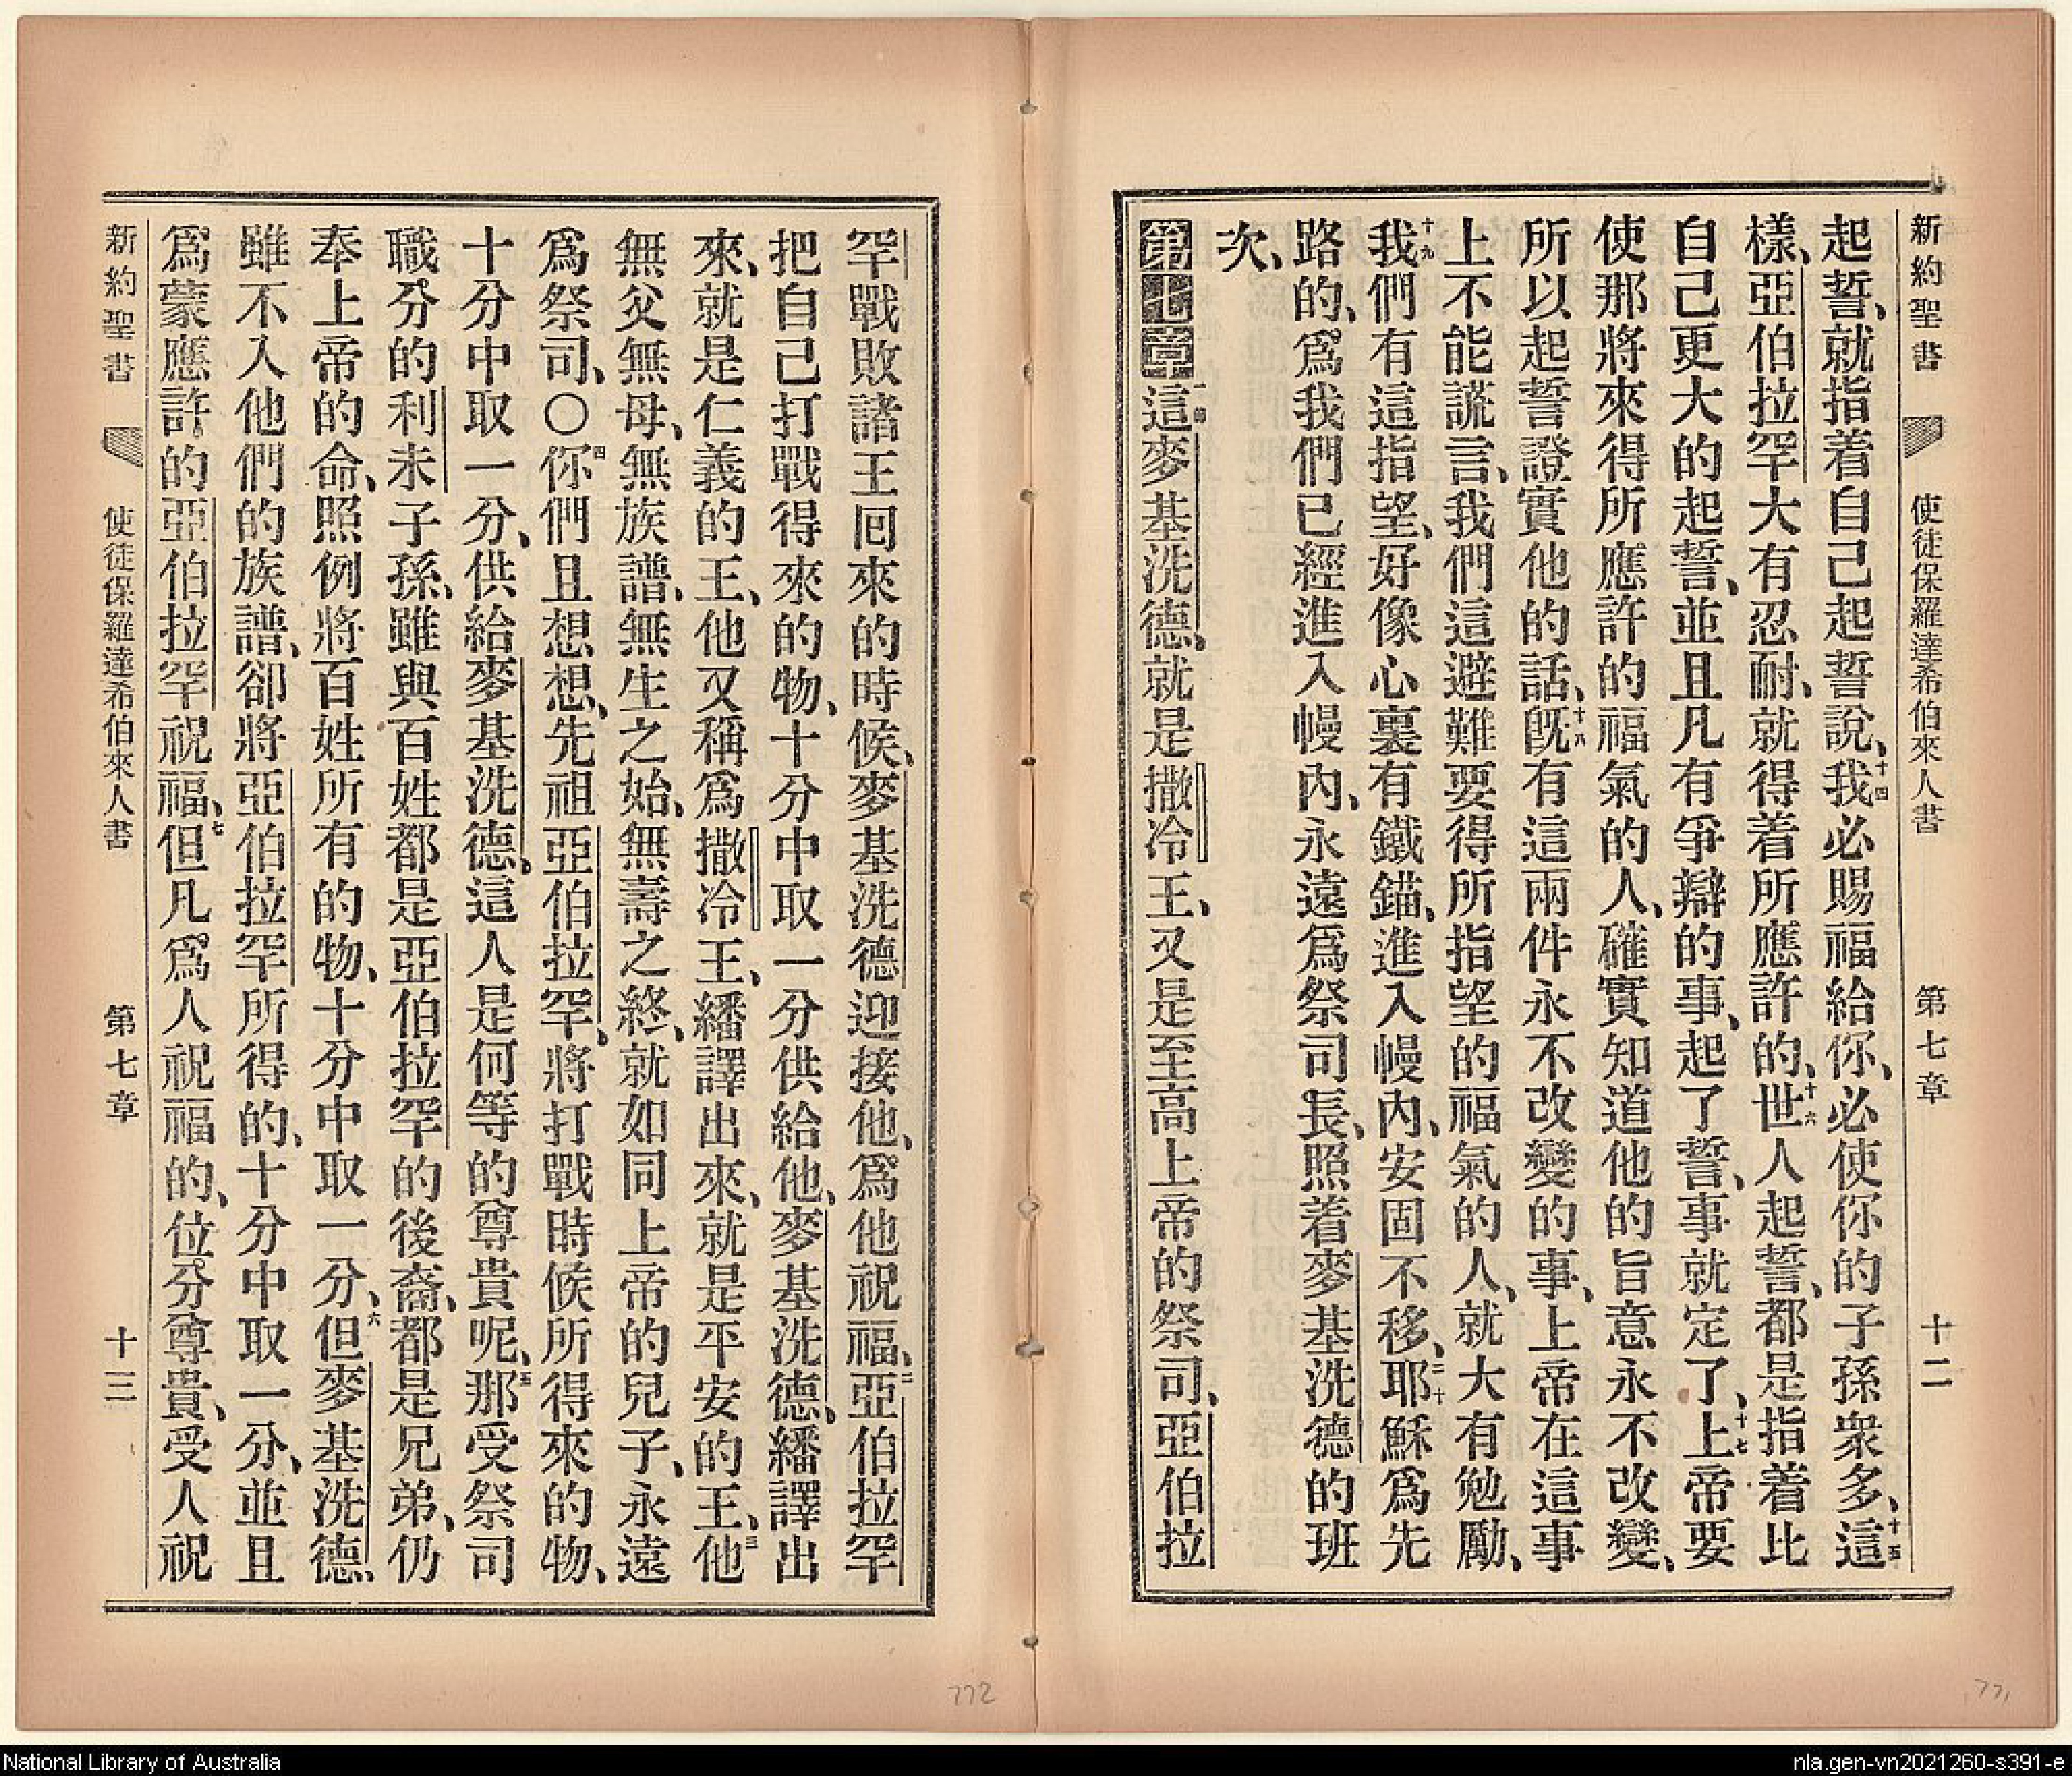 新約聖書 使徒保羅達希伯來人書 第七章 十二
起誓、就指着自己起誓說、十四我必賜福給你、必使你的子孫衆多、十五這
樣、亞伯拉罕大有忍耐、就得着所應許的、十六世人起誓、都是指着比
自己更大的起誓、並且凡有爭辯的事、起了誓、事就定了、十七上帝要
使那將來得所應許的福氣的人、確實知道他的旨意永不改變、
所以起誓證實他的話、十八旣有這兩件永不改變的事、上帝在這事
上不能謊言、我們這避難要得所指望的福氣的人、就大有勉勵、
十九我們有這指望、好像心裏有鐵錨、進入幔內、安固不移、二十耶穌爲先
路的、爲我們已經進入幔內、永遠爲祭司長、照着麥基洗德的班
次、
第七章一節這麥基洗德、就是撒冷王、又是至高上帝的祭司、亞伯拉
罕戰敗諸王回來的時候、麥基洗德迎接他、爲他祝福、二亞伯拉罕
把自己打戰得來的物、十分中取一分供給他、麥基洗德、繙譯出
來、就是仁義的王、他又稱爲撒冷王、繙譯出來、就是平安的王、三他
無父無母、無族譜、無生之始、無壽之終、就如同上帝的兒子、永遠
爲祭司、〇四你們且想想、先祖亞伯拉罕、將打戰時候所得來的物、
十分中取一分、供給麥基洗德、這人是何等的尊貴呢、五那受祭司
職分的利未子孫、雖與百姓都是亞伯拉罕的後裔、都是兄弟、仍
奉上帝的命、照例將百姓所有的物、十分中取一分、六但麥基洗德、
雖不入他們的族譜、卻將亞伯拉罕所得的、十分中取一分、並且
爲蒙應許的亞伯拉罕祝福、七但凡爲人祝福的、位分尊貴、受人祝
新約聖書 使徒保羅達希伯來人書 第七章 十三
772
771
National Library of Australia
nla.gen-vn2021260-s391-e